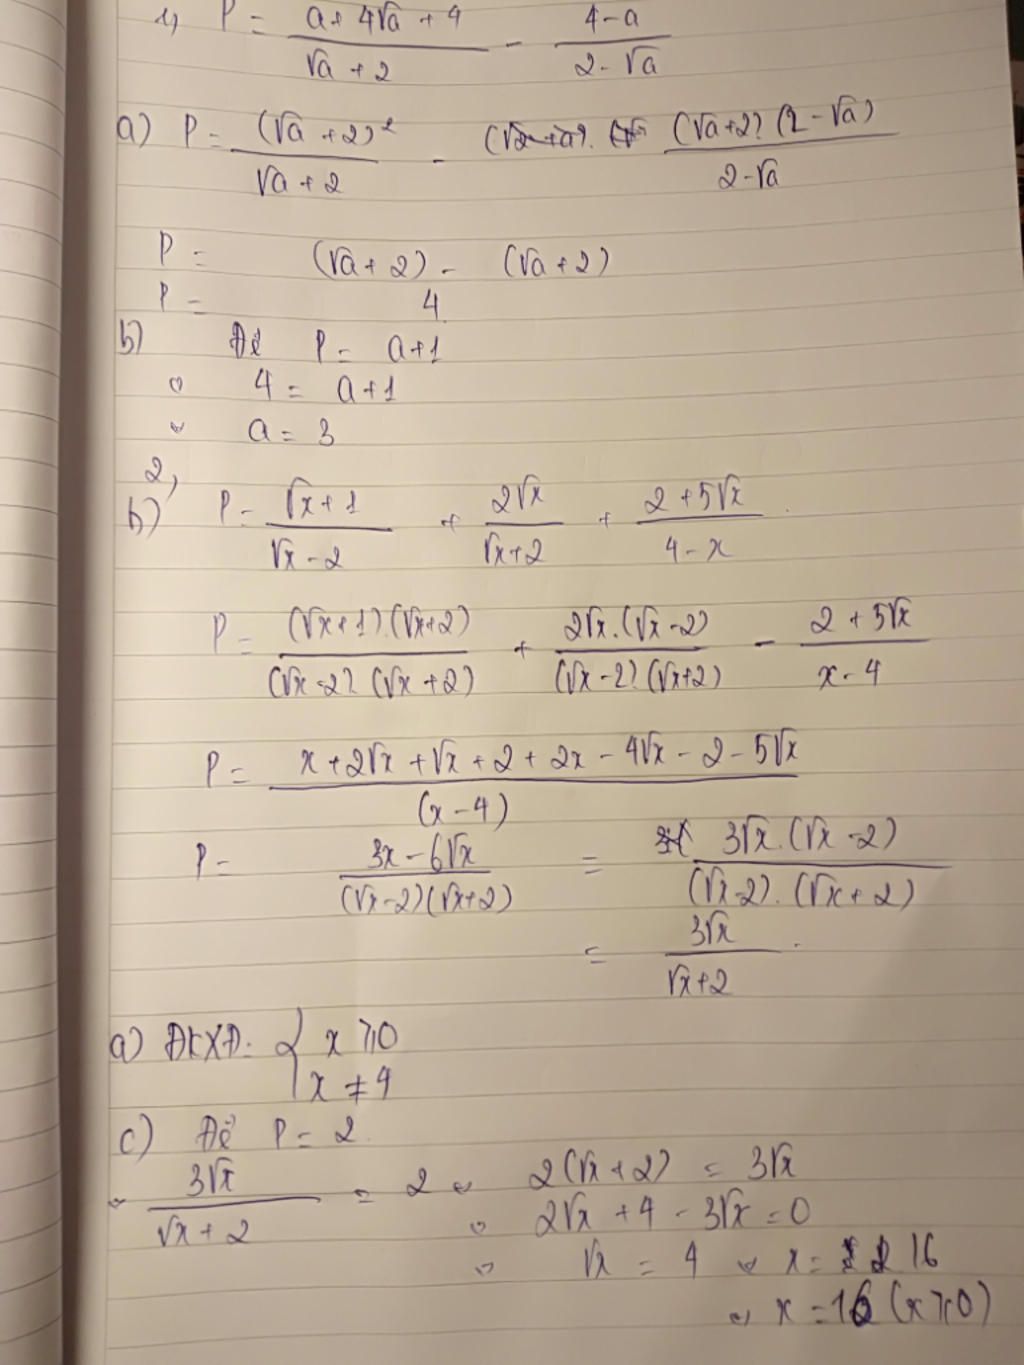 1) P = (a + 4√a + 4)/(√a + 2) - (4 - a)/(2 - √a)
a) P = (√a + 2)²/(√a + 2) - (√a + 2).(2 - √a)/(2 - √a)
P = (√a + 2) - (√a + 2)
P = 4
b) Để P = a + 1
⇔ 4 = a + 1
⇔ a = 3
2,
b) P = (√x + 1)/(√x - 2) + 2√x/(√x + 2) + (2 + 5√x)/(4 - x)
P = (√x + 1).(√x + 2)/(√x - 2).(√x + 2) + 2√x.(√x - 2)/(√x - 2).(√x + 2) - (2 + 5√x)/(x - 4)
P = (x + 2√x + √x + 2 + 2x - 4√x - 2 - 5√x)/(x - 4)
P = (3x - 6√x)/(√x - 2)(√x + 2) = 3√x.(√x - 2)/(√x - 2).(√x + 2)
= 3√x/(√x + 2)
a) ĐKXĐ: { x ≥ 0
x ≠ 4
c) Để P = 2
⇔ 3√x/(√x + 2) = 2 ⇔ 2(√x + 2) = 3√x
⇔ 2√x + 4 - 3√x = 0
⇔ √x = 4 ⇔ x = 16
⇔ x = 16 (x ≥ 0)